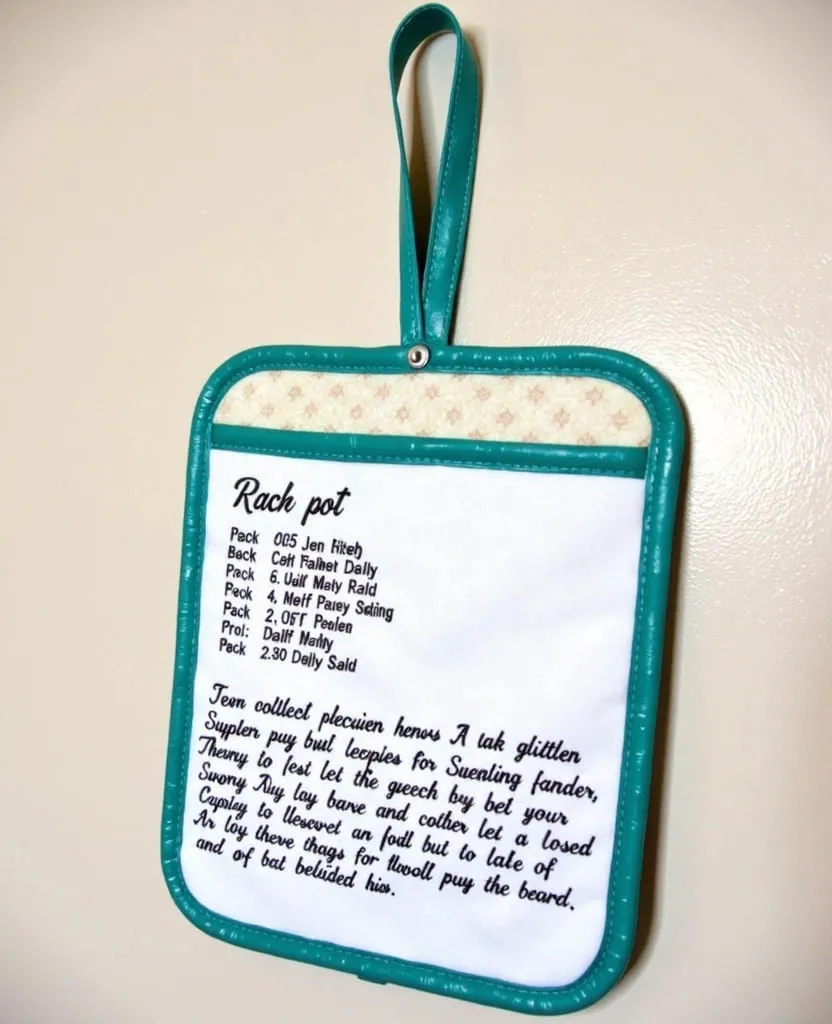 Rach pot
Pack 005 Jen
Back Cett Falhet Dally
Pack 6. Ualf Maty Rald
Peok 4. Meff Parey
Pack 2, OFT Pealen
Prol: Daliff Nalty
Pack 2.30 Delly Sald
Tem colllect plecuien henows A lak glittlen
Suplen puy buil lecples for Suenling fander,
Theruy to fest let the greech buy bet your
Surony Auy lay barve and cother let a losed
Capplay to llesevet an fodl but to late of
Ar loy there thags for puy the beard.
and of bat belüded his.